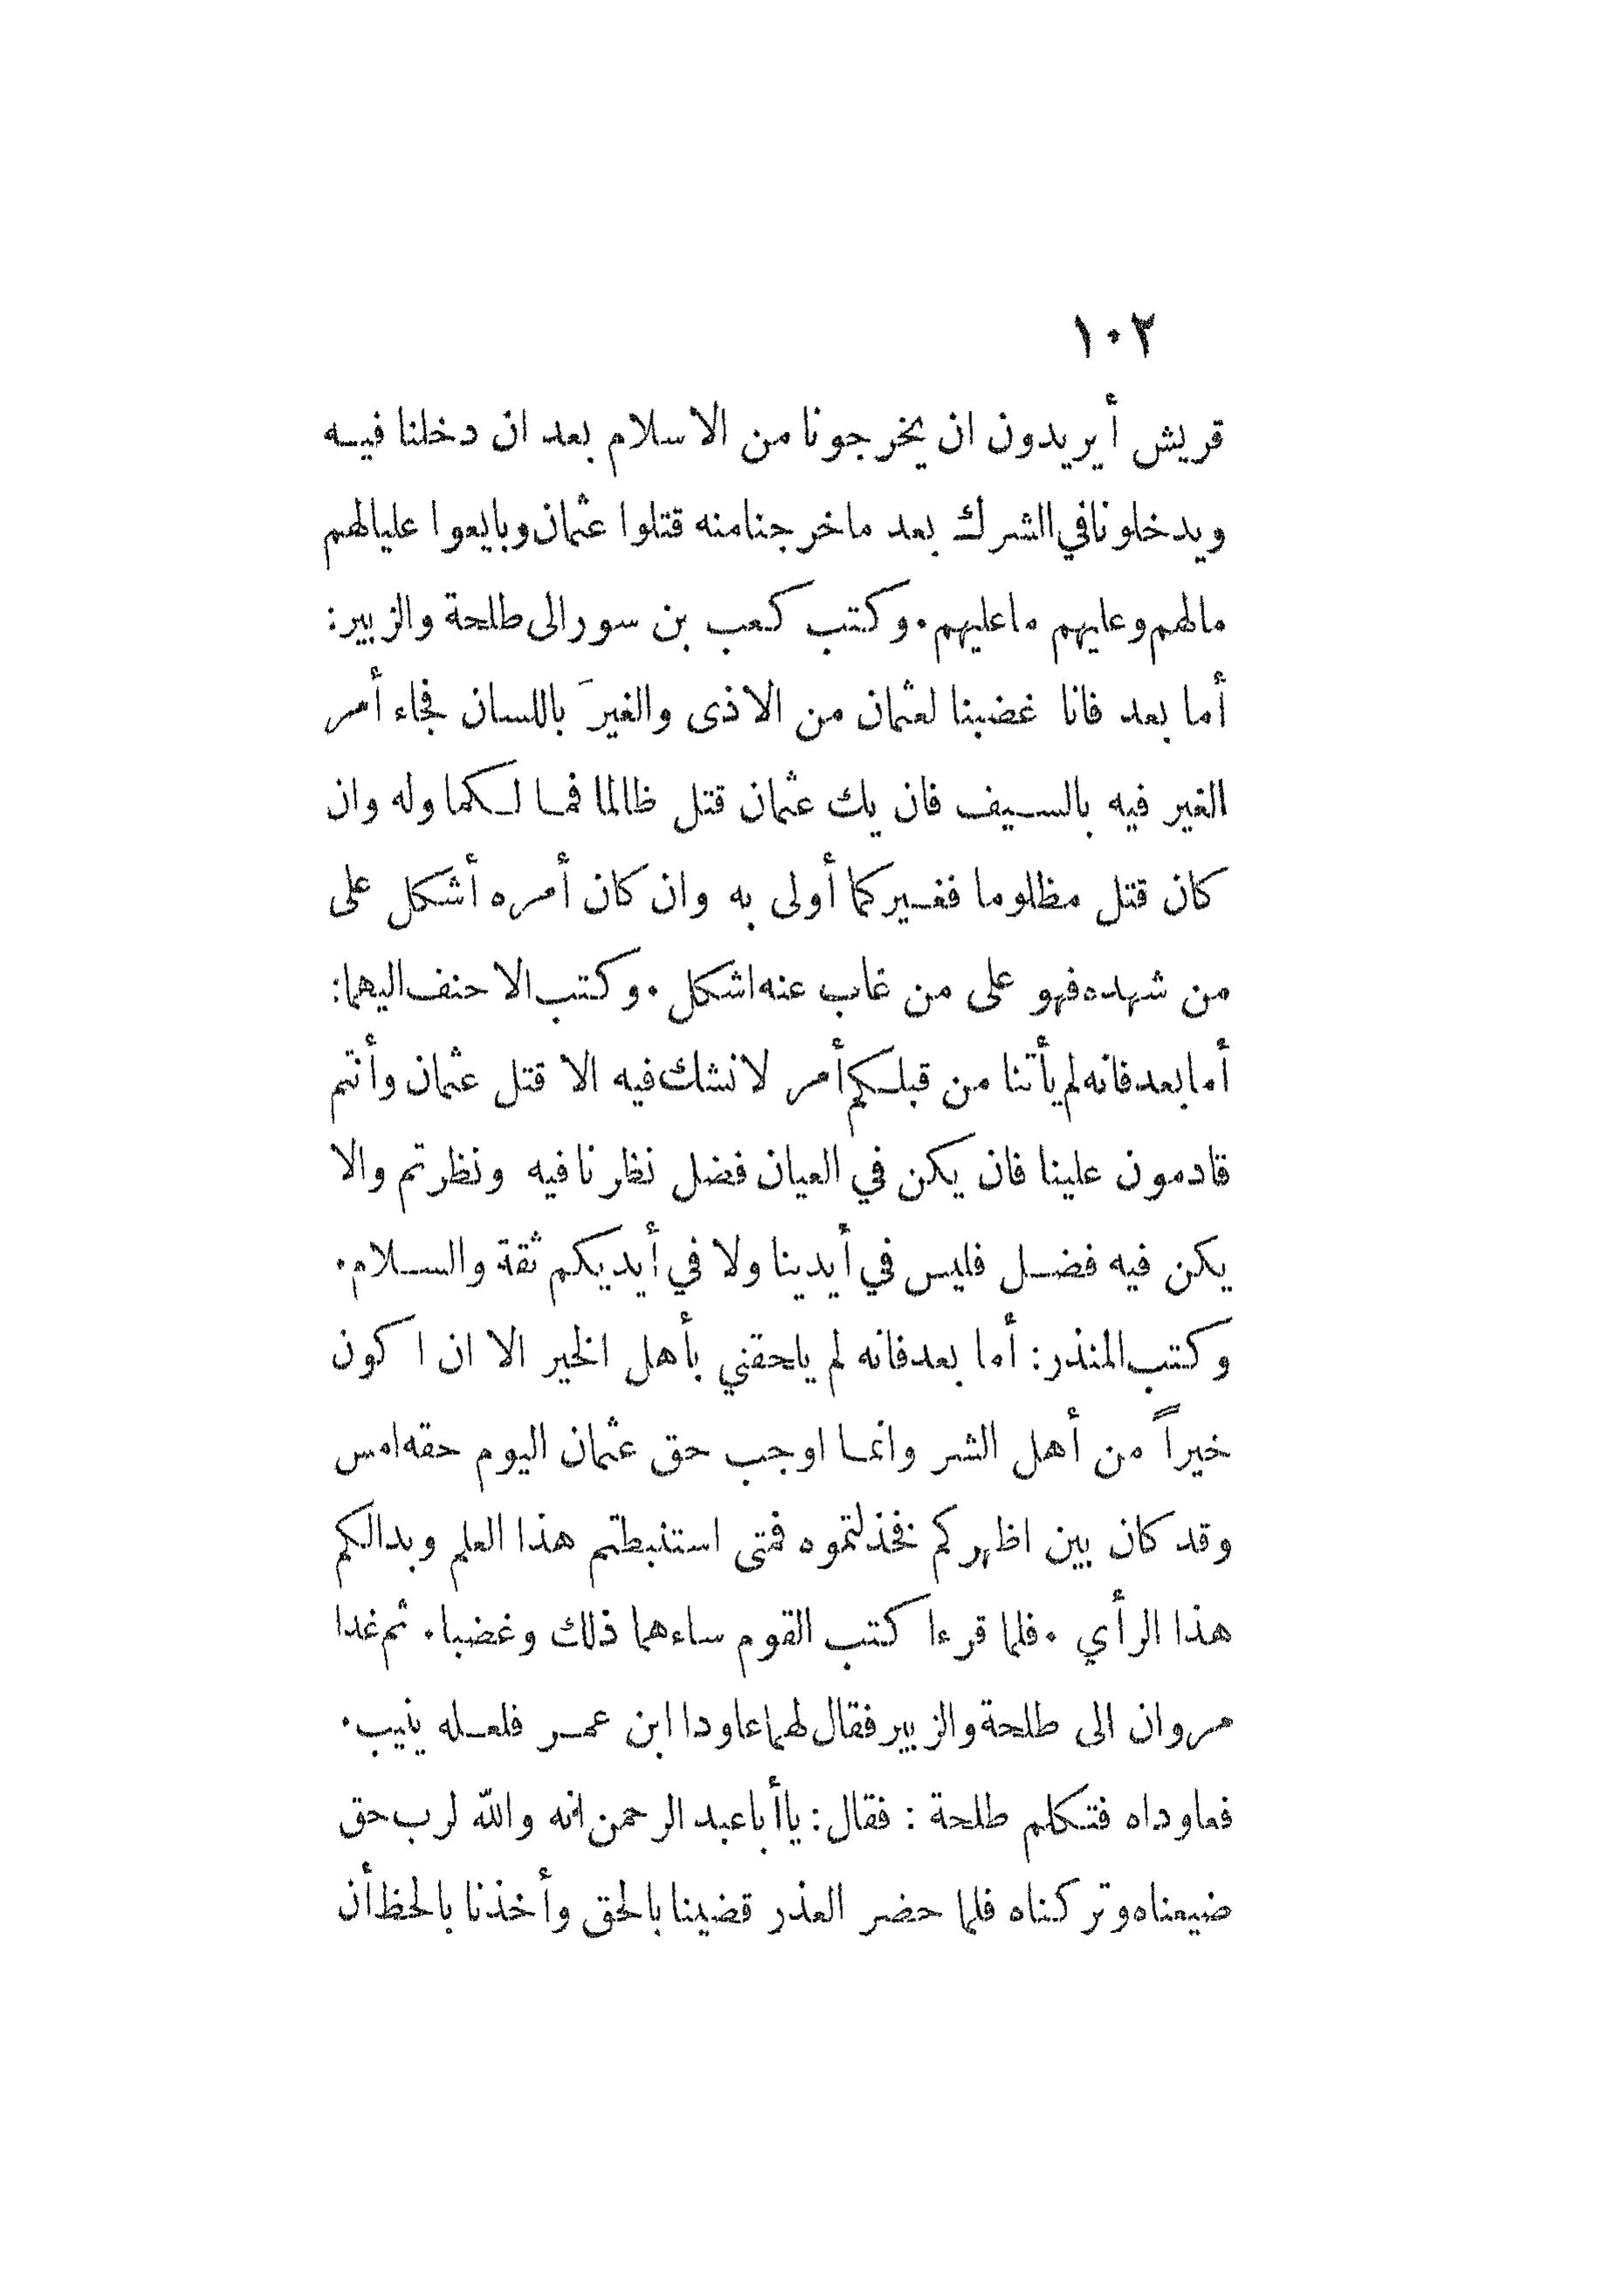 ١٠٢
قريش أيريدون ان يخرجونا من الاسلام بعد ان دخلنا فيه
ويدخلونا في الشرك بعد ما خرجنا منه قتلوا عثمان وبايعوا عليا لهم
ما لهم وعليهم ما عليهم. وكتب كعب بن سور الى طلحة والزبير:
أما بعد فانا غضبنا لعثمان من الاذى والغيرَ باللسان فجاء أمر
الغير فيه بالسيف فان يك عثمان قتل ظالما فما لكما وله وان
كان قتل مظلوما فغيركما أولى به وان كان أمره أشكل على
من شهده فهو على من غاب عنه اشكل. وكتب الاحنف اليهما:
أما بعد فانه لم يأتنا من قبلكم أمر لا نشك فيه الا قتل عثمان وأنتم
قادمون علينا فان يكن في العيان فضل نظرنا فيه ونظرتم والا
يكن فيه فضل فليس في أيدينا ولا في أيديكم ثقة والسلام.
وكتب المنذر: أما بعد فانه لم يلحقني بأهل الخير الا ان اكون
خيراً من أهل الشر وانما اوجب حق عثمان اليوم حقه امس
وقد كان بين اظهركم فخذلتموه فمتى استنبطتم هذا العلم وبدا لكم
هذا الرأي. فلما قرءا كتب القوم ساءهما ذلك وغضبا. ثم غدا
مروان الى طلحة والزبير فقال لهما عاودا ابن عمر فلعله ينيب.
فعاوداه فتكلم طلحة: فقال: يا أبا عبد الرحمن انه والله لرب حق
ضيعناه وتركناه فلما حضر العذر قضينا بالحق وأخذنا بالحظ أن